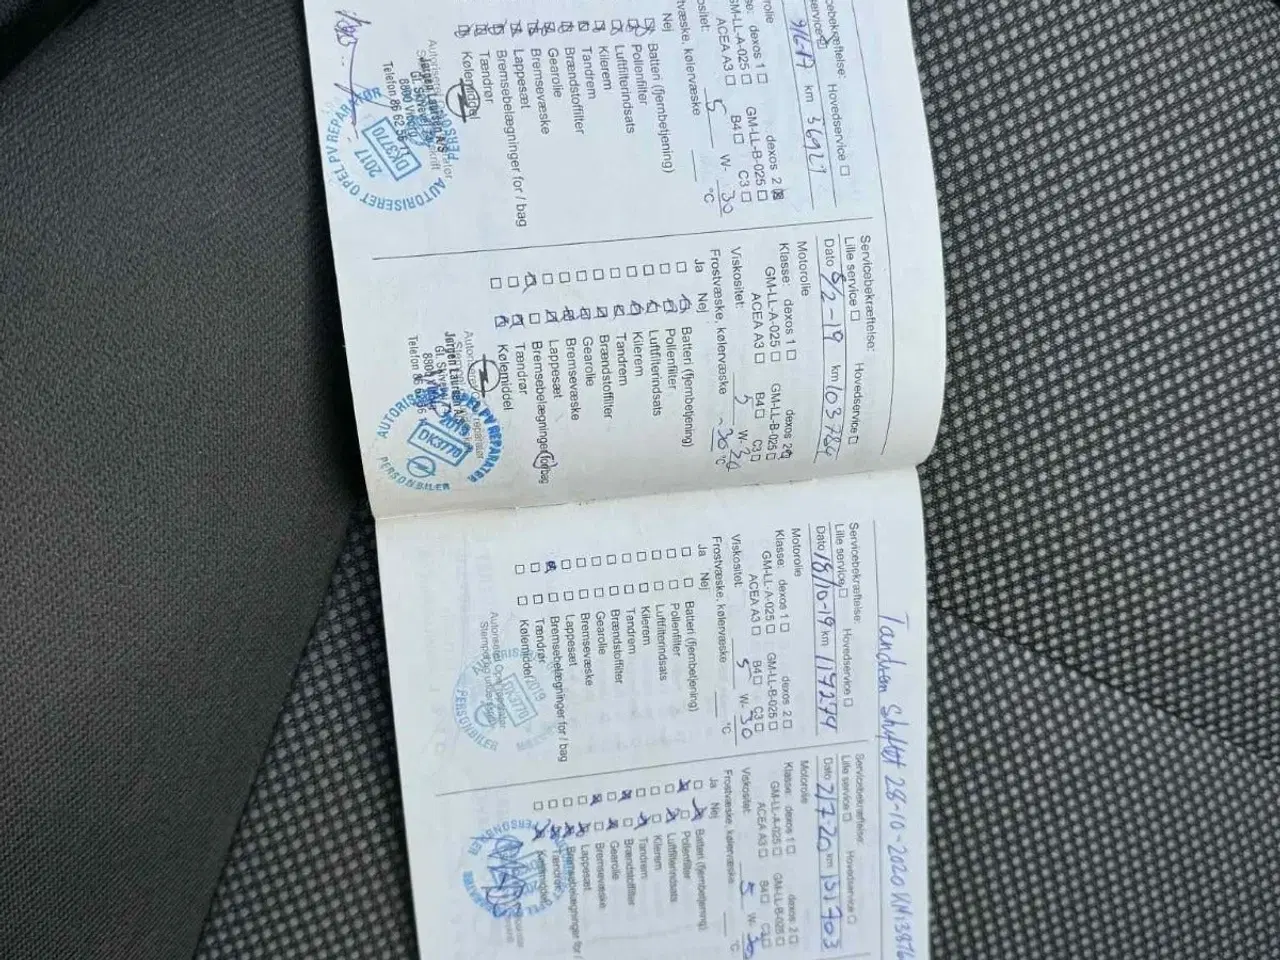 Servicebekræftelse:
Hovedservice
9/6-17 km 36927
Motorolie
Klasse: dexos 1 dexos 2
GM-LL-A-025 GM-LL-B-025
ACEA A3 B4 C3
Viskositet: 5 W- 30
Frostvæske, kølervæske °C
Nej
Batteri (fjernbetjening)
Pollenfilter
Luftfilterindsats
Kilerem
Tandrem
Brændstoffilter
Gearolie
Bremsevæske
Lappesæt
Bremsebelægninger for / bag
Tændrør
Kølemiddel
Jørgen Laursen A/S
8800 Viborg
AUTORISERET OPEL PV REPARATØR
2017
DK3770
Servicebekræftelse:
Lille service Hovedservice
Dato 5/2-19 km 103784
Motorolie
Klasse: dexos 1 dexos 2
GM-LL-A-025 GM-LL-B-025
ACEA A3 B4 C3
Viskositet: 5 W- 30
Frostvæske, kølervæske -30 °C
Ja Nej
Batteri (fjernbetjening)
Pollenfilter
Luftfilterindsats
Kilerem
Tandrem
Brændstoffilter
Gearolie
Bremsevæske
Lappesæt
Bremsebelægninger for/bag
Tændrør
Kølemiddel
Jørgen Laursen
2019
DK3770
PERSONBILER
Tandrem skiftet 28-10-2020
Servicebekræftelse:
Lille service Hovedservice
Dato 18/10-19 km 117294
Motorolie
Klasse: dexos 1 dexos 2
GM-LL-A-025 GM-LL-B-025
ACEA A3 B4 C3
Viskositet: 5 W- 30
Frostvæske, kølervæske °C
Ja Nej
Batteri (fjernbetjening)
Pollenfilter
Luftfilterindsats
Kilerem
Tandrem
Brændstoffilter
Gearolie
Bremsevæske
Lappesæt
Bremsebelægninger for / bag
Tændrør
Kølemiddel
2019
DK3770
PERSONBILER
Servicebekræftelse:
Lille service Hovedservice
Dato 2/7-20 km 131703
Motorolie
Klasse: dexos 1 dexos 2
GM-LL-A-025 GM-LL-B-025
ACEA A3 B4 C3
Viskositet: 5 W- 30
Frostvæske, kølervæske °C
Ja Nej
Batteri (fjernbetjening)
Pollenfilter
Luftfilterindsats
Kilerem
Tandrem
Brændstoffilter
Gearolie
Bremsevæske
Lappesæt
Bremsebelægninger for /
Tændrør
Kølemiddel